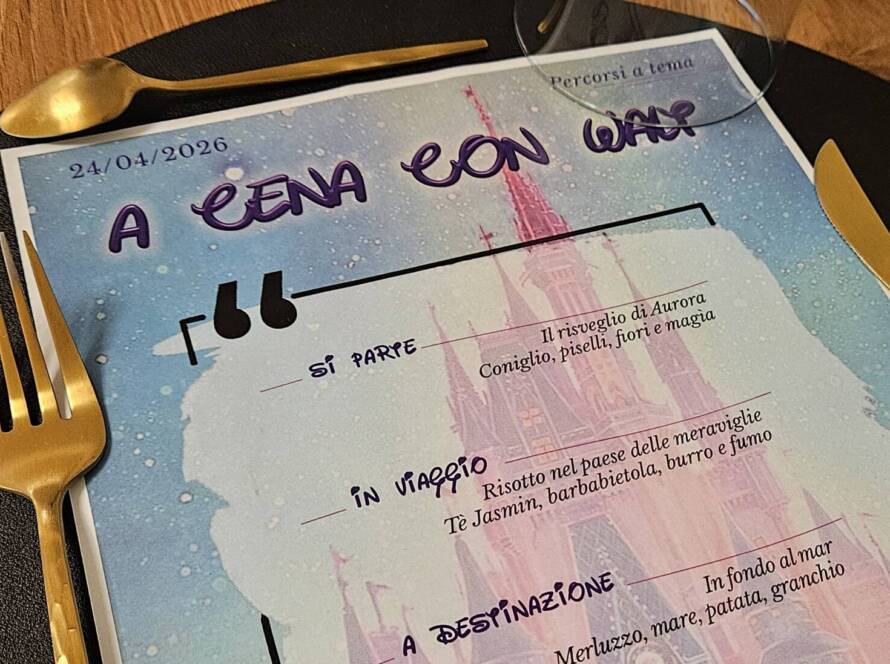 Percorsi a tema
24/04/2026
A CENA CON WALT
“
SI PARTE
Il risveglio di Aurora
Coniglio, piselli, fiori e magia
IN VIAGGIO
Risotto nel paese delle meraviglie
Tè Jasmin, barbabietola, burro e fumo
A DESTINAZIONE
In fondo al mar
Merluzzo, mare, patata, granchio